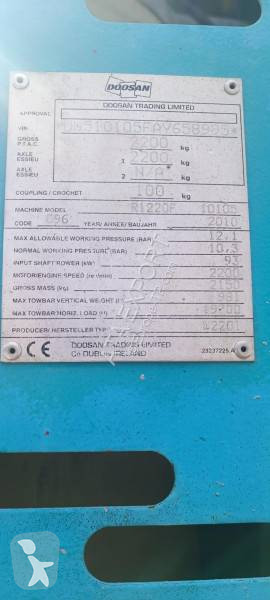 DOOSAN
DOOSAN TRADING LIMITED
APPROVAL
VIN
GROSS P.T.A.C. 2200 kg
AXLE ESSIEU 1 2200 kg
AXLE ESSIEU 2 N/A* kg
COUPLING / CROCHET 100 kg
MACHINE MODEL 10105
CODE YEAR/ ANNEE/ BAUJAHR 2010
MAX ALLOWABLE WORKING PRESSURE (BAR) 12,1
NORMAL WORKING PRESSURE (BAR) 10,3
INPUT SHAFT POWER (kW) 93
MOTOR/ENGINE SPEED (rev/min) 2200
GROSS MASS (kg) 2150
MAX TOWBAR VERTICAL WEIGHT (N) 981
MAX TOWBAR HORIZ. LOAD (N)
PRODUCER/ HERSTELLER TYP
CE DOOSAN TRADING LIMITED
Co DUBLIN IRELAND 23237225 A